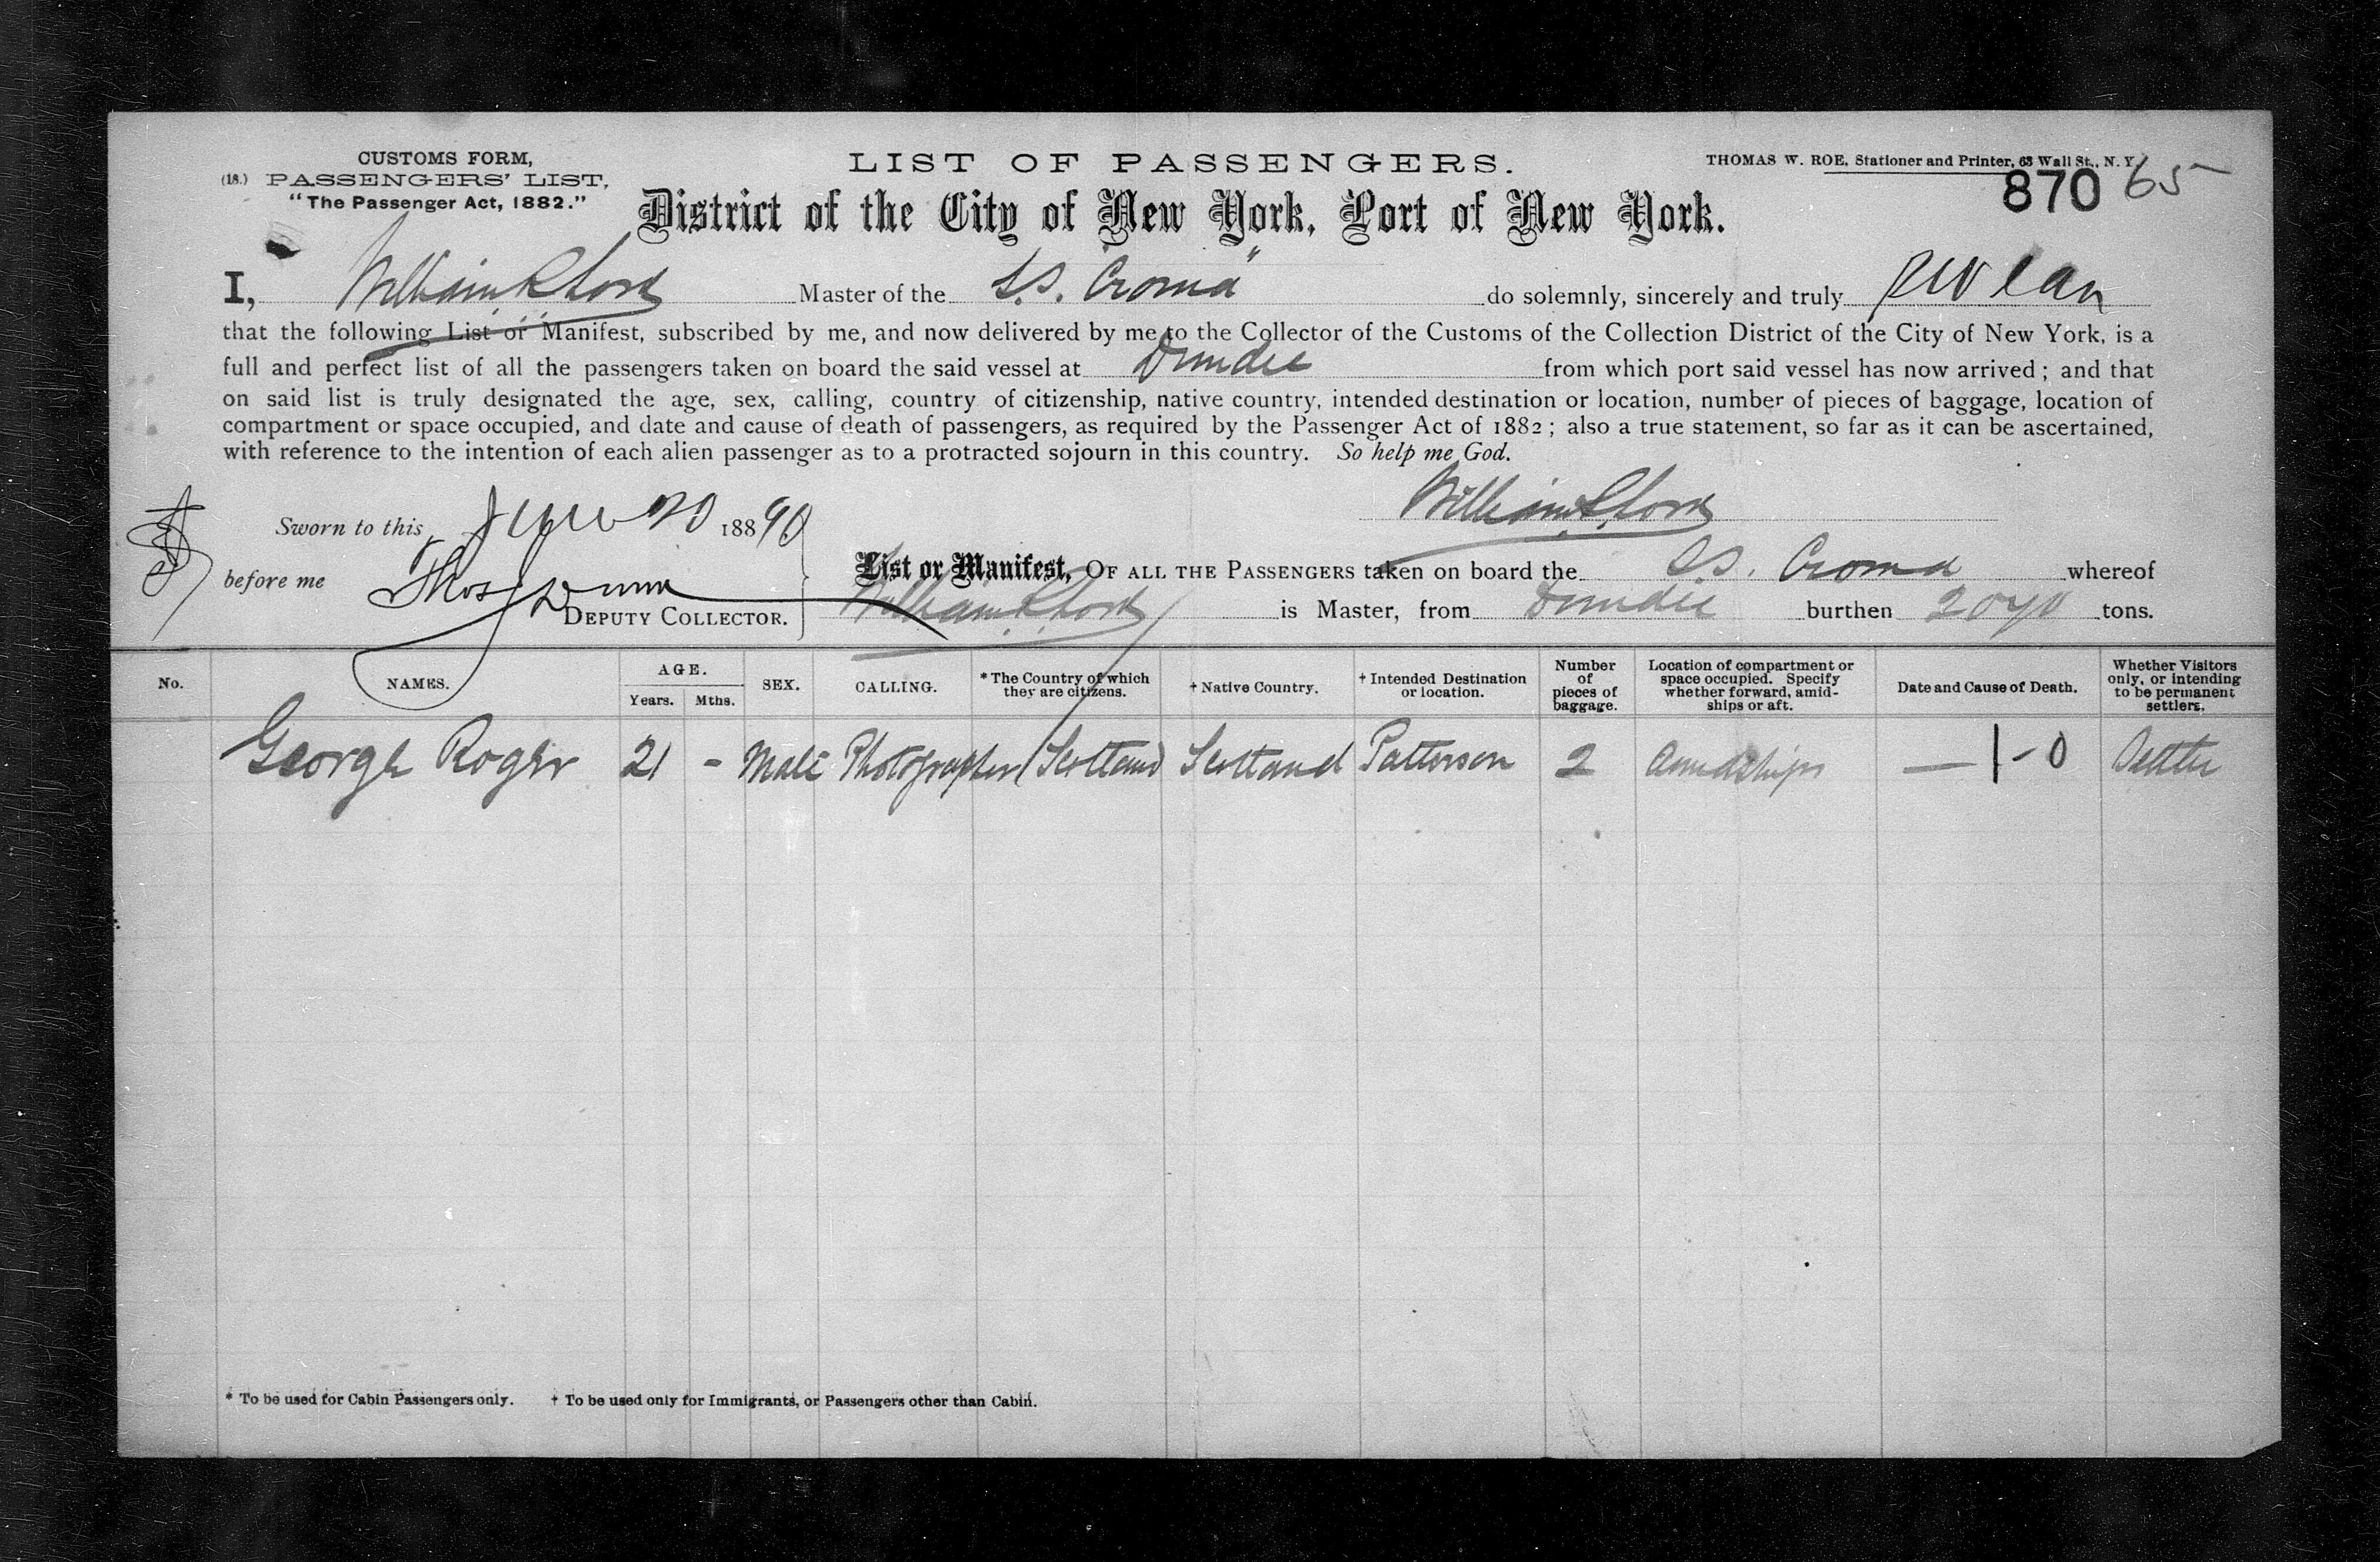 CUSTOMS FORM,
(18.) PASSENGERS' LIST,
"The Passenger Act, 1882."
LIST OF PASSENGERS.
THOMAS W. ROE, Stationer and Printer, 63 Wall St., N. Y.
870 65
District of the City of New York, Port of New York.
I, William R Lord Master of the S.S. "Croma" do solemnly, sincerely and truly
that the following List or Manifest, subscribed by me, and now delivered by me to the Collector of the Customs of the Collection District of the City of New York, is a
full and perfect list of all the passengers taken on board the said vessel at Dundee from which port said vessel has now arrived; and that
on said list is truly designated the age, sex, calling, country of citizenship, native country, intended destination or location, number of pieces of baggage, location of
compartment or space occupied, and date and cause of death of passengers, as required by the Passenger Act of 1882; also a true statement, so far as it can be ascertained,
with reference to the intention of each alien passenger as to a protracted sojourn in this country. So help me God.
William R. Lord
Sworn to this 20 18890
before me Thos Dunn
DEPUTY COLLECTOR.
List or Manifest, OF ALL THE PASSENGERS taken on board the S.S. Croma whereof
William R. Lord is Master, from Dundee burthen tons.
No. NAMES. AGE. Years. Mths. SEX. CALLING. * The Country of which they are citizens. † Native Country. † Intended Destination or location. Number of pieces of baggage. Location of compartment or space occupied. Specify whether forward, amidships or aft. Date and Cause of Death. Whether Visitors only, or intending to be permanent settlers.
George Roger 21 - Male Photographer Scotland Scotland Patterson 2 Amidships — 1-0 Settler
* To be used for Cabin Passengers only. † To be used only for Immigrants, or Passengers other than Cabin.